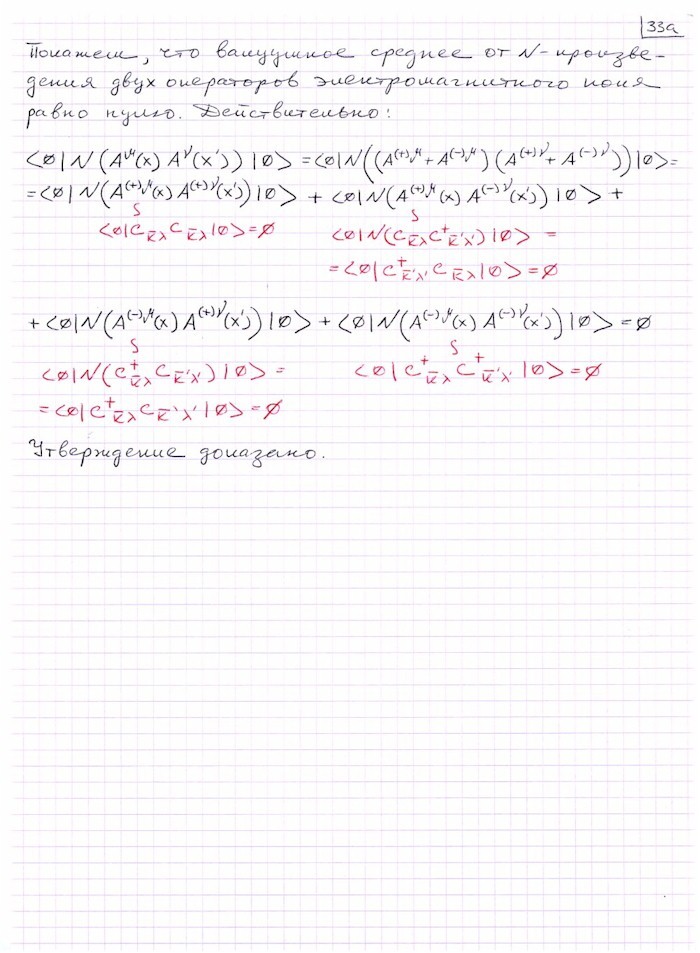 33а
Покажем, что вакуумное среднее от N-произве-
дения двух операторов электромагнитного поля
равно нулю. Действительно:
<0|N(A^μ(x) A^ν(x'))|0> = <0|N((A^(+)μ + A^(-)μ)(A^(+)ν + A^(-)ν))|0> =
= <0|N(A^(+)μ(x) A^(+)ν(x'))|0> + <0|N(A^(+)μ(x) A^(-)ν(x'))|0> +
<0|C_k̄λ C_k̄λ|0> = 0 <0|N(C_k̄λ C^+_k̄'λ')|0> =
= <0|C^+_k̄'λ' C_k̄λ|0> = 0
+ <0|N(A^(-)μ(x) A^(+)ν(x'))|0> + <0|N(A^(-)μ(x) A^(-)ν(x'))|0> = 0
<0|N(C^+_k̄λ C_k̄'λ')|0> = <0|C^+_k̄λ C^+_k̄'λ'|0> = 0
= <0|C^+_k̄λ C_k̄'λ'|0> = 0
Утверждение доказано.